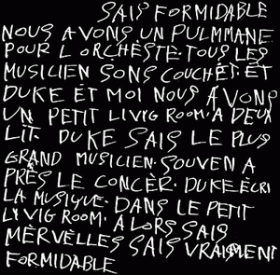 SAIS FORMIDABLE
NOUS AVONS UN PULMMANE
POUR L'ORCHÈSTE. TOUS LES
MUSICIEN SONS COUCHÈT. ET
DUKE ET MOI NOUS AVONS
UN PETIT LIVIG ROOM. A DEUX
LIT. DUKE SAIS LE PLUS
GRAND MUSICIEN. SOUVEN A
PRÈS LE CONCÈR. DUKE ÈCRI
LA MUSIQUE. DANS LE PETIT
LIVIG ROOM. ALORS SAIS
MÈRVELLES SAIS VRAIMENT
FORMIDABLE